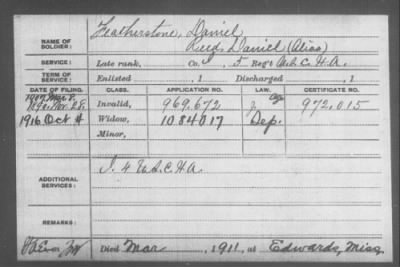 NAME OF SOLDIER: Featherstone, Daniel
Reed, Daniel (Alias)
SERVICE: Late rank, Co. , 5 Reg't U.S.C.H.A.
TERM OF SERVICE: Enlisted , 1 Discharged , 1
DATE OF FILING. CLASS. APPLICATION NO. LAW. CERTIFICATE NO.
1907 Mar 8.
1890. Nov. 28. Invalid, 969.672 J. 972.015
1916 Oct 4 Widow, 1084017 Dep.
Minor,
ADDITIONAL SERVICES: I. 4 U.S.C.H.A.
REMARKS:
Died Mar , 1911, at Edwards, Miss.